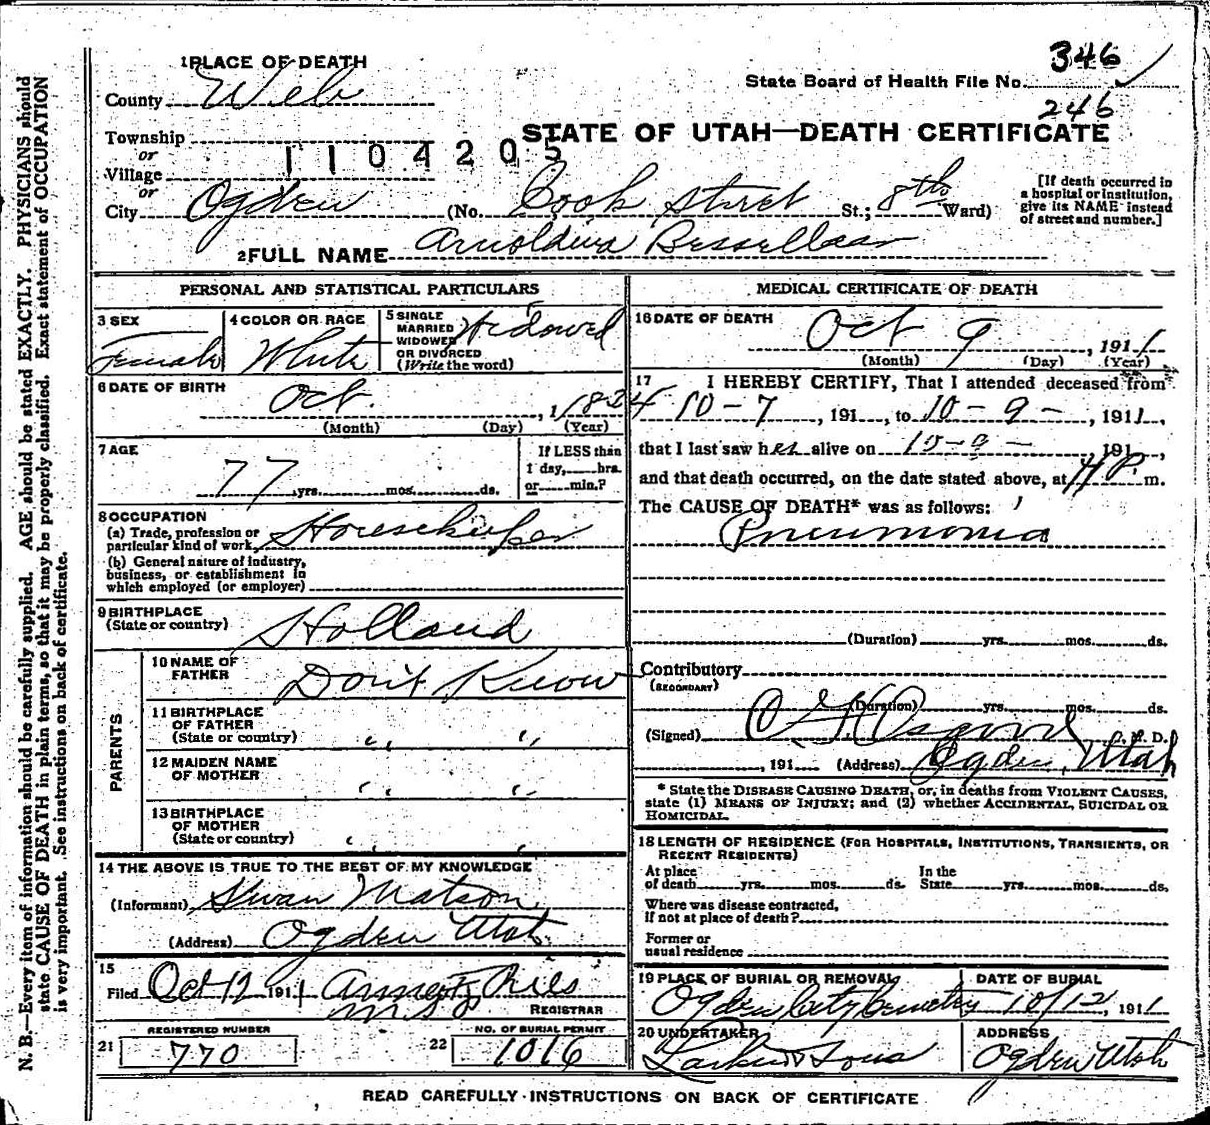 346
1 PLACE OF DEATH
State Board of Health File No.
County Web
246
STATE OF UTAH—DEATH CERTIFICATE
Township
or
1104205
Village
or
City Ogden (No. Cook Street St.; 8th Ward)
[If death occurred in
a hospital or institution,
give its NAME instead
of street and number.]
2 FULL NAME Arnoldina Bessellaar
PERSONAL AND STATISTICAL PARTICULARS
3 SEX Female
4 COLOR OR RACE White
5 SINGLE
MARRIED
WIDOWED
OR DIVORCED
(Write the word)
Widowed
6 DATE OF BIRTH
Oct. , 1 1834
(Month) (Day) (Year)
7 AGE
77 yrs. mos. ds.
If LESS than
1 day, hrs.
or min.?
8 OCCUPATION
(a) Trade, profession or
particular kind of work Housekeeper
(b) General nature of industry,
business, or establishment in
which employed (or employer)
9 BIRTHPLACE
(State or country) Holland
PARENTS
10 NAME OF
FATHER Don't Know
11 BIRTHPLACE
OF FATHER
(State or country) " "
12 MAIDEN NAME
OF MOTHER " "
13 BIRTHPLACE
OF MOTHER
(State or country) " "
14 THE ABOVE IS TRUE TO THE BEST OF MY KNOWLEDGE
(Informant) Swan Matson
(Address) Ogden Utah
15
Filed Oct 12 1911
REGISTRAR
REGISTERED NUMBER
21 770
NO. OF BURIAL PERMIT
22 1016
MEDICAL CERTIFICATE OF DEATH
16 DATE OF DEATH
Oct 9 , 1911
(Month) (Day) (Year)
17 I HEREBY CERTIFY, That I attended deceased from
10-7 , 191 , to 10-9- , 1911,
that I last saw her alive on 10-9- 191 ,
and that death occurred, on the date stated above, at 4 P. m.
The CAUSE OF DEATH* was as follows:
Pneumonia
(Duration) yrs. mos. ds.
Contributory
(SECONDARY)
(Duration) yrs. mos. ds.
(Signed) M. D.
, 191 (Address) Ogden, Utah
* State the DISEASE CAUSING DEATH, or, in deaths from VIOLENT CAUSES,
state (1) MEANS OF INJURY; and (2) whether ACCIDENTAL, SUICIDAL OR
HOMICIDAL.
18 LENGTH OF RESIDENCE (FOR HOSPITALS, INSTITUTIONS, TRANSIENTS, OR
RECENT RESIDENTS)
At place
of death yrs. mos. ds.
In the
State yrs. mos. ds.
Where was disease contracted,
If not at place of death?
Former or
usual residence
19 PLACE OF BURIAL OR REMOVAL
Ogden City Cemetery
DATE OF BURIAL
10/12 , 1911
20 UNDERTAKER
Larkin & Sons
ADDRESS
Ogden Utah
READ CAREFULLY INSTRUCTIONS ON BACK OF CERTIFICATE
N. B.—Every item of information should be carefully supplied. AGE should be stated EXACTLY. PHYSICIANS should
state CAUSE OF DEATH in plain terms, so that it may be properly classified. Exact statement of OCCUPATION
is very important. See instructions on back of certificate.